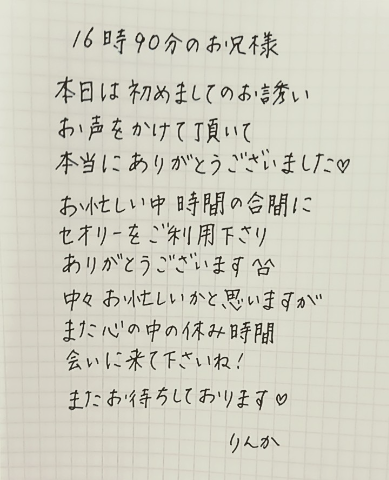 16時90分のお兄様
本日は初めましてのお誘い
お声をかけて頂いて
本当にありがとうございました♡
お忙しい中 時間の合間に
セオリーをご利用下さり
ありがとうございます^^
中々お忙しいかと思いますが
また心の中の休み時間
会いに来て下さいね!
またお待ちしております♡
りんか